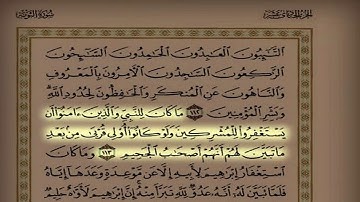 الجزء الحادي عشر
سورة التوبة
التَّٰٓئِبُونَ الْعَٰبِدُونَ الْحَٰمِدُونَ السَّٰٓئِحُونَ
الرَّٰكِعُونَ السَّٰجِدُونَ الْءَامِرُونَ بِالْمَعْرُوفِ
وَالنَّاهُونَ عَنِ الْمُنكَرِ وَالْحَٰفِظُونَ لِحُدُودِ اللَّهِ
وَبَشِّرِ الْمُؤْمِنِينَ ١١٢ مَا كَانَ لِلنَّبِيِّ وَالَّذِينَ ءَامَنُوٓا أَن
يَسْتَغْفِرُوا لِلْمُشْرِكِينَ وَلَوْ كَانُوٓا أُولِي قُرْبَىٰ مِنۢ بَعْدِ
مَا تَبَيَّنَ لَهُمْ أَنَّهُمْ أَصْحَٰبُ الْجَحِيمِ ١١٣ وَمَا كَانَ
اسْتِغْفَارُ إِبْرَٰهِيمَ لِأَبِيهِ إِلَّا عَن مَّوْعِدَةٍ وَعَدَهَآ إِيَّاهُ
فَلَمَّا تَبَيَّنَ لَهُۥٓ أَنَّهُۥ عَدُوٌّ لِّلَّهِ تَبَرَّأَ مِنْهُ إِنَّ إِبْرَٰهِيمَ لَأَوَّٰهٌ حَلِيمٌ